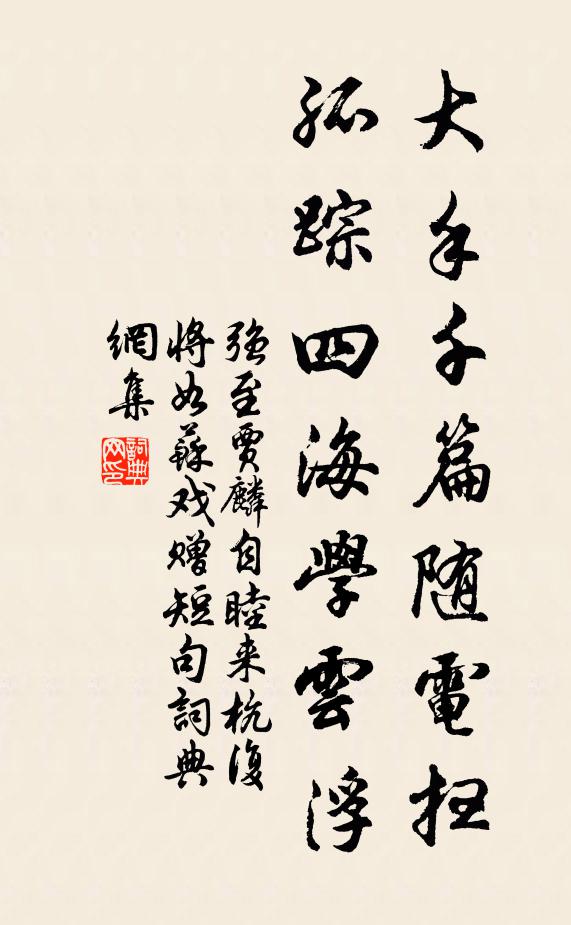 大手千篇随電扫
孤踪四海學雲浮
强至賈麟自睦来杭復
將如蘇戏赠短句詞典
網集
詞典
网印